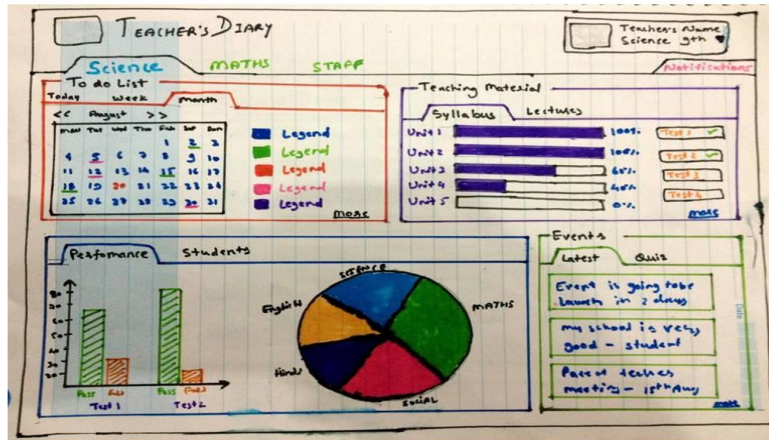 TEACHER'S DIARY
Teacher's Name
Science 9th
Science
MATHS
STAFF
Notifications
To do List
Today
Week
Month
<< August >>
Mon Tue Wed Thu Fri Sat Sun
1 2 3
4 5 6 7 8 9 10
11 12 13 14 15 16 17
18 19 20 21 22 23 24
25 26 27 28 29 30 31
Legend
Legend
Legend
Legend
Legend
more
Teaching Material
Syllabus
Lectures
Unit 1 100%
Unit 2 100%
Unit 3 65%
Unit 4 40%
Unit 5 0%
Test 1
Test 2
Test 3
Test 4
more
Perfomance
Students
Pass
Pass
Test 1
Test 2
SCIENCE
MATHS
SOCIAL
Hindi
English
Events
Latest
Quiz
Event is going to be
launch in 2 days
my school is very
good - student
Parent teches
meeting - 15th Aug
more
Date